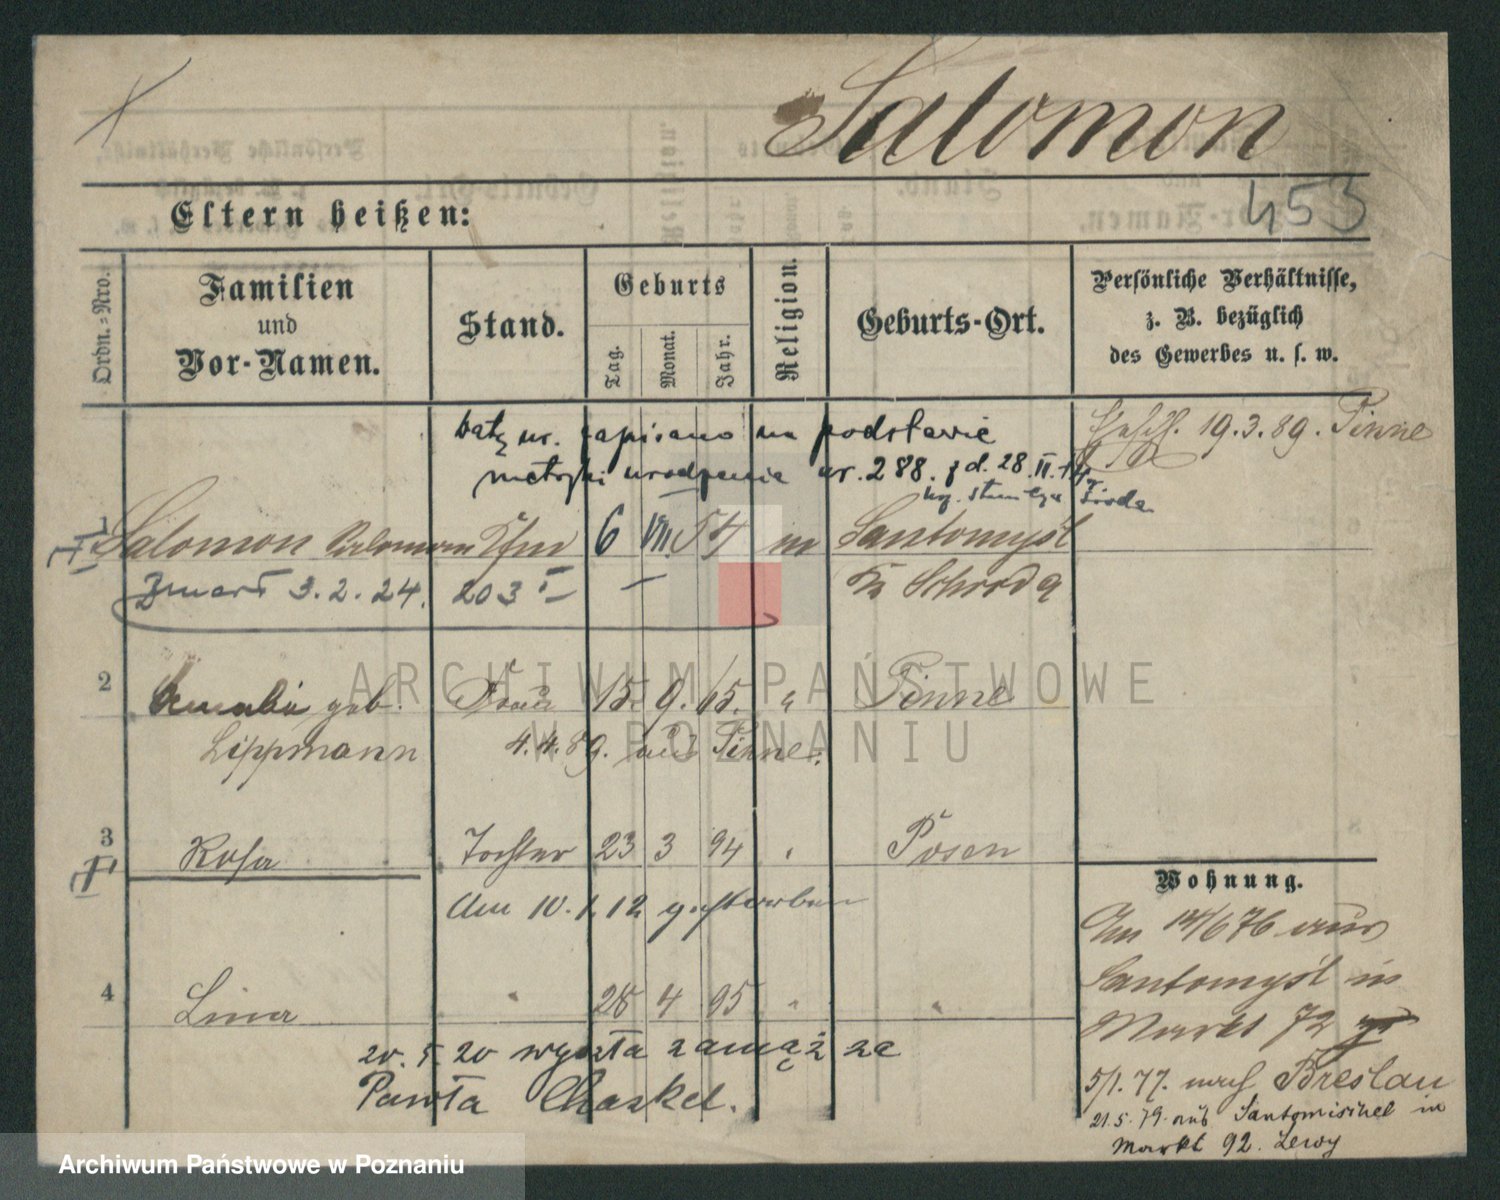 Salomon
453
Eltern heißen:
Ordn.=Nro.
Familien
und
Vor-Namen.
Stand.
Geburts
Tag.
Monat.
Jahr.
Religion.
Geburts-Ort.
Persönliche Verhältnisse,
z. B. bezüglich
des Gewerbes u. s. w.
Datę ur. zapisano na podstawie
metryki urodzenia nr. 288. z d. 28. II.
Gesch. 19.3.89. Pinne
1 Salomon Salomon Kfm 6 VIII. 54 m Santomysl
Zmarł 3.2.24. 203 I
Kr Schroda
2 Amalie geb. Frau 15. 9. 65. " Pinne
Lippmann 4.4.89. aus Pinne.
3 Rosa Tochter 23 3 94 " Posen
† Am 10.1.12 gestorben
4 Lina " 28 4 95 " "
20.5.20 wyszła zamąż za
Pawła Chaskel.
Wohnung.
Am 14/6 76 aus
Santomysl in
Markt 72
5/1. 77. nach Breslau
21.5.79. aus Santomischel in
Markt 92. Lewy
ARCHIWUM PAŃSTWOWE
W POZNANIU
Archiwum Państwowe w Poznaniu